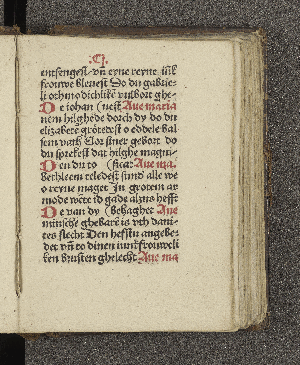 entfengest vn̄ eyne reyne iūc
frouwe bleuest Do du gabrie-
li othmodichlikē vulbort ghe-
De iohan (nest Aue maria
nem hilghede dorch dy do du
elizabet grötedest o eddele bal
sem vath Vor siner gebort do
du sprekest dat hilghe magni-
Den du to (ficat Aue ma.
Bethleem teledest sund alle we
o reyne maget In grotem ar
mode wēte id gade alzus hefft
De van dy (behaghet Aue
minsche ghebarē is vth daui-
tes slecht Den hefstu angebe-
det vn̄ to dinen iunkfrouweli
ken brusten ghelecht Aue ma